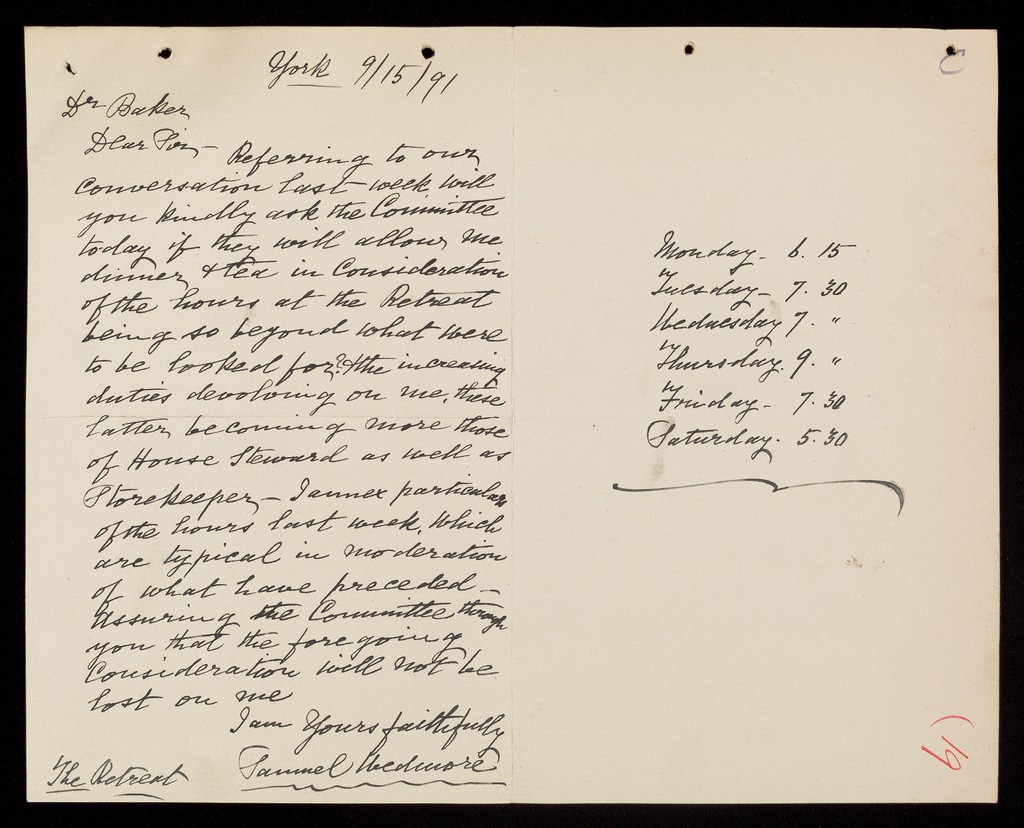 York 9/15/91
Dr Baker
Dear Sir, – Referring to our
conversation last week will
you kindly ask the Committee
today if they will allow me
dinner & tea in consideration
of the hours at the Retreat
being so beyond what were
to be looked for? & the increasing
duties devolving on me, these
latter, becoming more those
of House Steward as well as
Storekeeper – I annex particulars
of the hours last week, which
are typical in moderation
of what have preceded –
Assuring the Committee through
you that the foregoing
consideration will not be
lost on me
I am Yours faithfully
Samuel Wedmore
The Retreat
Monday – 6. 15
Tuesday – 7. 30
Wednesday 7. "
Thursday. 9. "
Friday – 7. 30
Saturday. 5. 30
19)